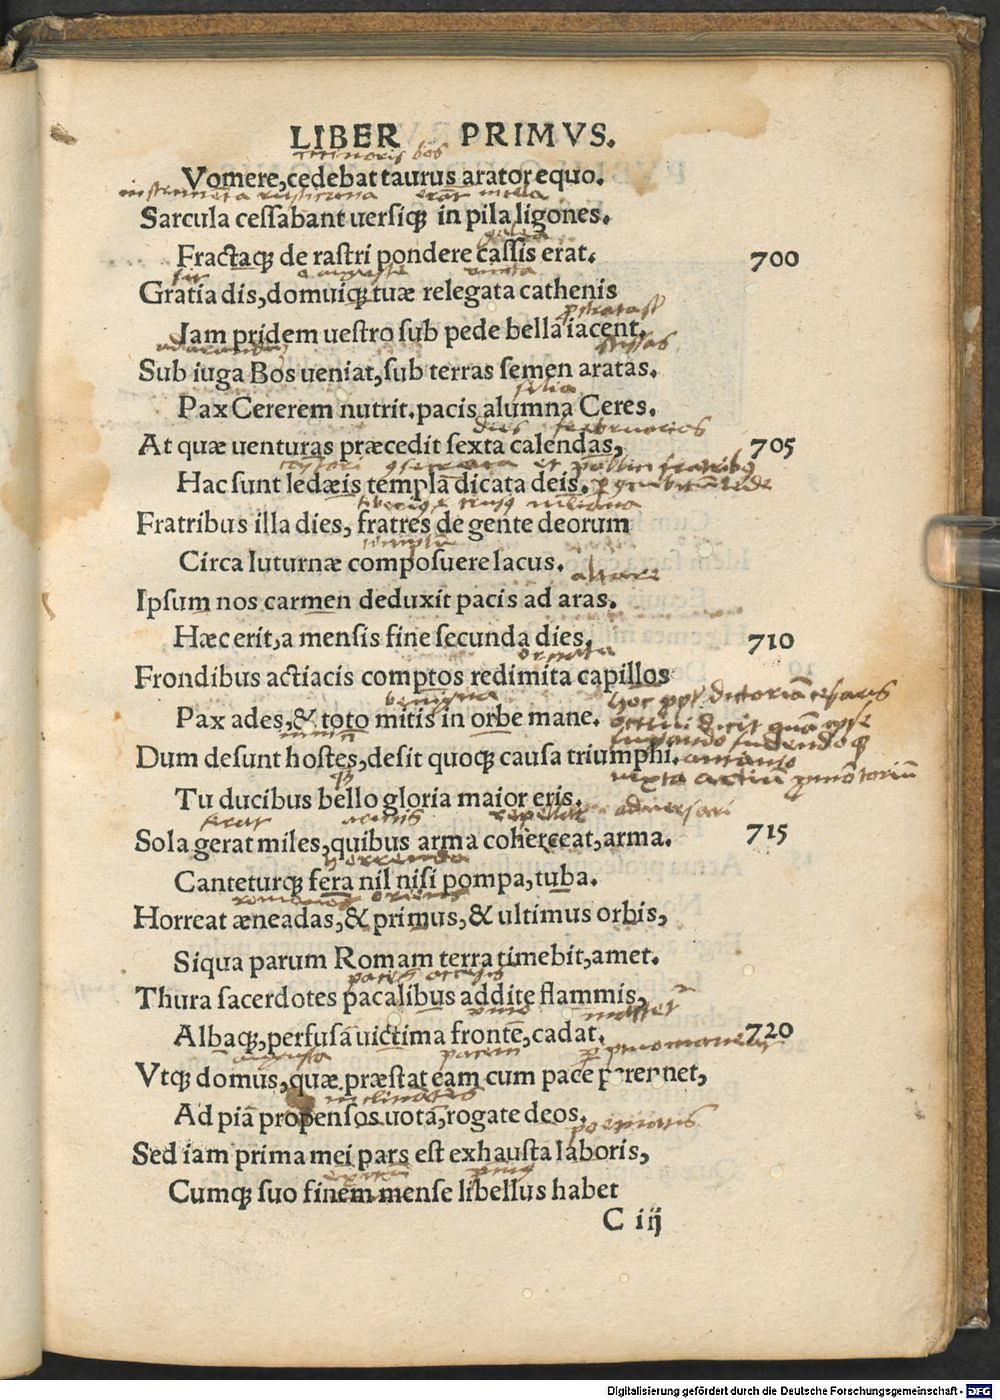 LIBER PRIMVS.
bos
Vomere,cedebat taurus arator equo.
erat
Sarcula ceſſabant uerſiq́ꝫ in pila ligones.
galea
Fractaqꝫ de raſtri pondere caſſis erat. 700
sit o auguste
Gratia dis,domuiqꝫ tuæ relegata cathenis
Jam pridem ueſtro ſub pede bella iacent.
Sub iuga Bos ueniat,ſub terras ſemen aratas.
filia
Pax Cererem nutrit.pacis alumna Ceres.
dies februarias
At quæ uenturas præcedit ſexta calendas, 705
et
Hac ſunt ledæis templa dicata deis.
Fratribus illa dies, fratres de gente deorum
Circa Iuturnæ compoſuere lacus.
altare
Ipſum nos carmen deduxit pacis ad aras.
Hæc erit,a menſis fine ſecunda dies. 710
ornata
Frondibus actiacis comptos redimita capillos
benigna
Pax ades,& toto mitis in orbe mane.
Dum deſunt hoſtes,deſit quoqꝫ cauſa triumphi.
Tu ducibus bello gloria maior eris.
ferat armis repellat adversari
Sola gerat miles,quibus arma coherceat,arma. 715
horrenda
Canteturqꝫ fera nil niſi pompa,tuba.
romanos oriens
Horreat æneadas,& primus,& ultimus orbis,
Siqua parum Romam terra timebit,amet.
Thura ſacerdotes pacalibus addite flammis,
Albaqꝫ,perfuſa uictima fronte,cadat. 720
augusta pacem
Vtqꝫ domus,quæ præſtat eam cum pace perennet,
inclinatos
Ad piā propenſos uota,rogate deos.
poematis
Sed iam prima mei pars eſt exhauſta laboris,
Cumqꝫ ſuo finem menſe libellus habet
C iij
Digitalisierung gefördert durch die Deutsche Forschungsgemeinschaft - DFG